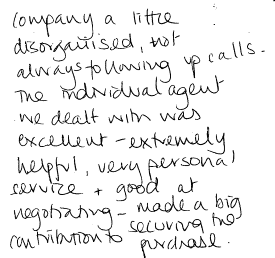 company a little
disorganised, not
always following up calls.
The individual agent
we dealt with was
excellent - extremely
helpful, very personal
service + good at
negotiating - made a big
contribution to securing the
purchase.